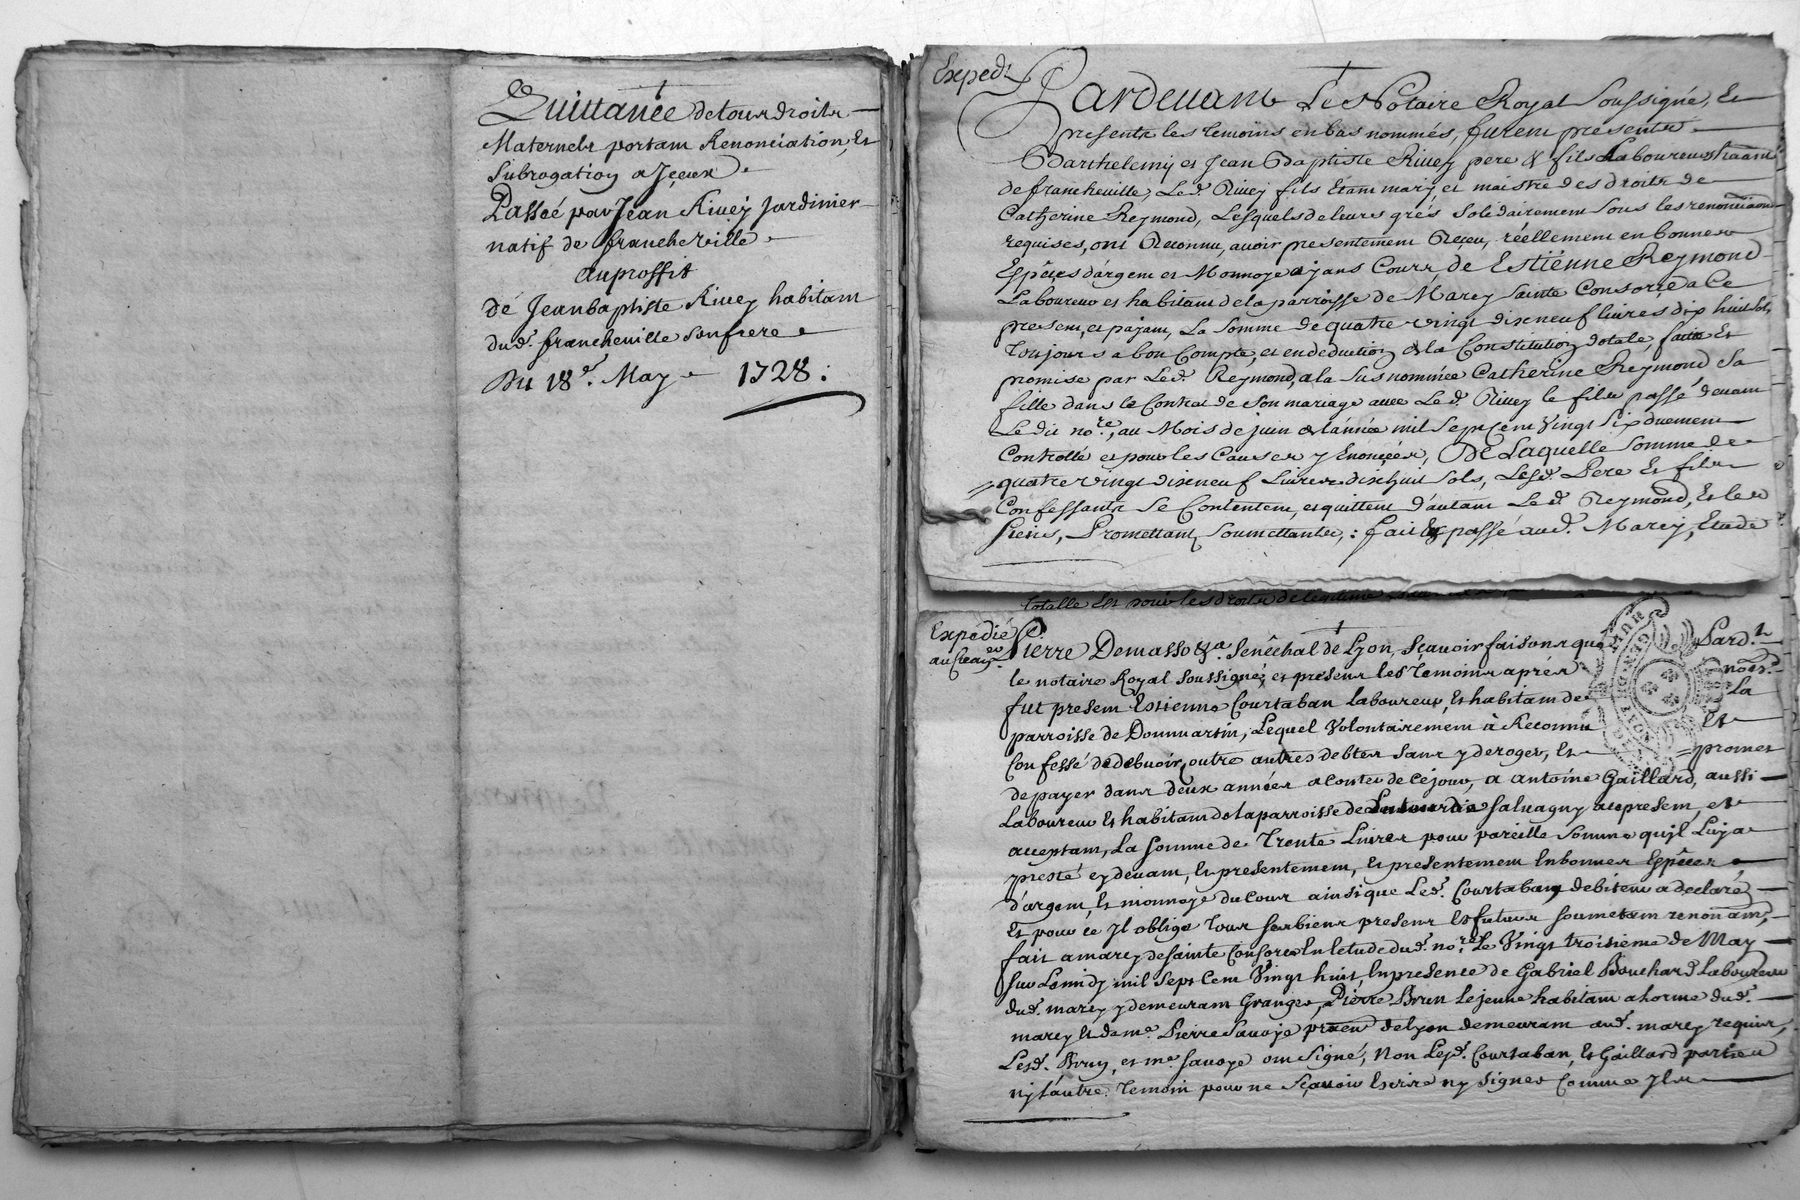 Quittance de tous droits
Maternels portant Renonciation, Et
Subrogation a Iceux
Passé par Jean Rivey Jardinier
natif de francheville
au proffit
de Jean baptiste Rivey habitant
dud. francheville son frere
Du 18e. May 1728.
Exped.
Pardevant Le Notaire Royal soussigné, Et
presents les temoins en bas nommés, furent presents
Barthelemy et Jean Baptiste Rivey pere & fils Laboureurs habitants
de francheville, Led. Rivey fils Etant mary et maistre des droits de
Catherine Reymond, Lesquels de leurs grés solidairement sous les renonciations
requises, ont Reconnu, avoir presentement Reçeu, réellement en bonnes
Espêces d'argent et Monnoye ayans Cours, de Estiénne Reymond
Laboureur et habitant de la parroisse de Marcy Sainte Consorce a Ce
present, et payant, La somme de quatre vingt dix neuf livres dix huit sols,
Toujours a bon Compte, et en deduction de la Constitution dotale, faite Et
promise par Led. Reymond, a la susnommée Catherine Reymond sa
fille dans le Contrat de son mariage avec Led. Rivey le fils passé devant
Le dit nore, au Mois de juin de l'année mil sept Cent Vingt Six duement
Controllé et pour les Causes y Enoncées, De Laquelle somme de
quatre vingt dix neuf Livres dixhuit sols, Lesd. Pere Et fils
Confessants se Contentent, et quittent d'autant Led. Reymond, Et les
siens, Promettants soumettants, : fait & passé aud. Marcy, Etude
totalle Et pour les droits de legitime
Expedié
au Cean.er
Pierre Demasso &a. Senêchal de Lyon, Sçavoir faisons que Pard.t
le notaire Royal soussigné, et presens les Temoins aprés noes.
fut present Estienne Courtaban laboureur, Et habitant de La
parroisse de Dommartin, Lequel Volontairement à Reconnu Et
Confessé de debvoir, outre autres debtes sans y deroger, Et promet
de payer dans deux années a Conter de Ce jour, a antoine Gaillard, aussi
Laboureur Et habitant de la parroisse de Salvagny ace present, et
acceptant, La somme de Trente Livres pour pareille somme qu'il Luy a
presté cy devant, Et presentement, Et presentement En bonnes Espêces
d'argent, Et monnoye du Cour ainsi que Led. Courtaban debiteur a declaré
Et pour ce Il oblige Tous ses biens presens Et futurs soumettant renonçant,
fait a marcy de sainte Consorce En l'etude dud. nore Le Vingt troisieme de May
sur Le midy mil sept Cent Vingt huit, En presence de Gabriel Bouchard Laboureur
dud. marcy y demeurant Granger, Pierre Brun le jeune habitant a horme dud.
marcy Et de me. Pierre Savoye de Lyon demeurant aud. marcy requis,
Lesd. Brun, et me. Savoye ont signé, Non Lesd. Courtaban, Et Gaillard parties
ny l'autre Temoin pour ne Sçavoir Escrire ny signer Comme Ils